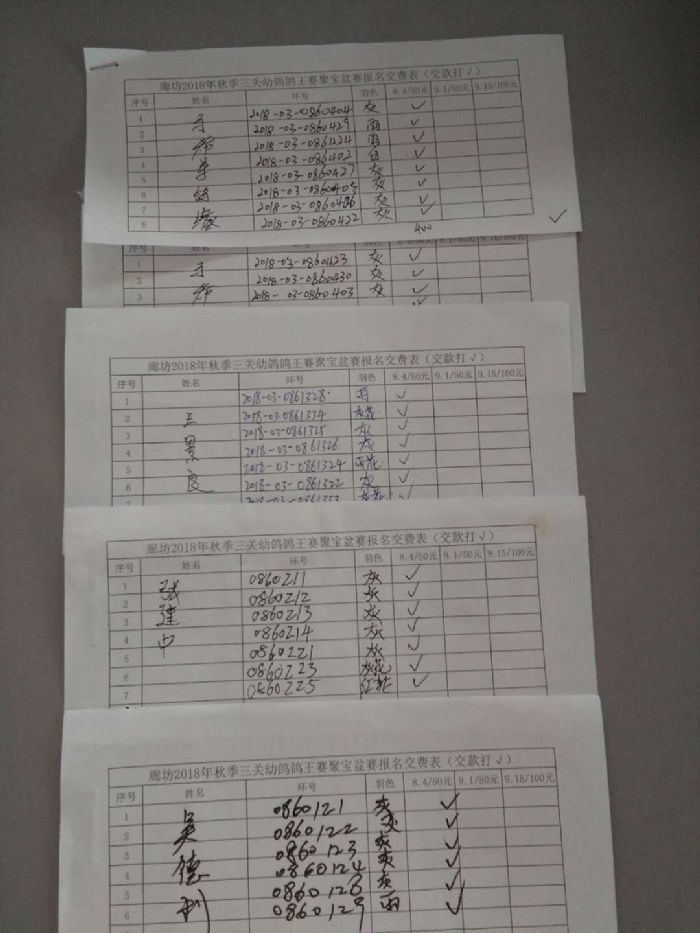 廊坊2018年秋季三关幼鸽鸽王赛聚宝盆赛报名交费表（交款打√）
序号 姓名 环号 羽色 8.4/50元 9.1/50元 9.15/100元
1 2018-03-0860404 灰 √
2 2018-03-0860429 雨 √
3 2018-03-0860424 雨 √
4 2018-03-0860402 白 √
5 2018-03-0860427 灰 √
6 2018-03-0860405 灰 √
7 2018-03-0860406 灰 √
8 2018-03-0860422 灰 √
400 √
1 2018-03-0860423 灰 √
2 2018-03-0860430 灰 √
3 2018-03-0860403 灰 √
廊坊2018年秋季三关幼鸽鸽王赛聚宝盆赛报名交费表（交款打√）
序号 姓名 环号 羽色 8.4/50元 9.1/50元 9.15/100元
1 2018-03-0861328 雨 √
2 王 2018-03-0861334 灰花 √
3 2018-03-0861325 灰 √
4 景 2018-03-0861326 灰 √
5 2018-03-0861324 雨花 √
6 良 2018-03-0861322 灰 √
7 灰花 √
廊坊2018年秋季三关幼鸽鸽王赛聚宝盆赛报名交费表（交款打√）
序号 姓名 环号 羽色 8.4/50元 9.1/50元 9.15/100元
1 张 0860211 灰 √
2 0860212 灰 √
3 建 0860213 灰 √
4 中 0860214 灰 √
5 0860221 灰 √
6 0860223 灰花 √
7 0860225 红花 √
廊坊2018年秋季三关幼鸽鸽王赛聚宝盆赛报名交费表（交款打√）
序号 姓名 环号 羽色 8.4/50元 9.1/50元 9.15/100元
1 吴 0860121 灰 √
2 0860122 灰 √
3 德 0860123 灰 √
4 0860124 灰 √
5 利 0860128 灰 √
6 0860129 雨 √